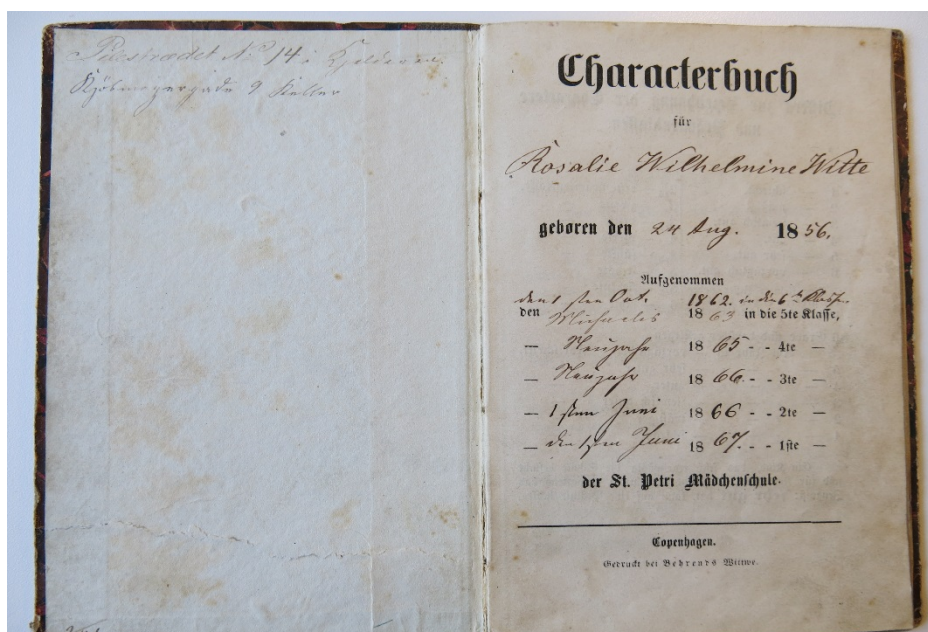 Pilestrædet No 14 i Kjelderen
Kjöbmagergade 9 Keller
Characterbuch
für
Rosalie Wilhelmine Witte
geboren den 24 Aug. 1856.
Aufgenommen
den 1sten Oct. 1862. in die 6te Klasse
den Michaelis 1863 in die 5te Klasse,
— Neujahr 1865 - - 4te —
— Neujahr 1866 - - 3te —
— 1sten Juni 1866 - - 2te —
— den 1sten Juni 1867. - - 1ste —
der St. Petri Mädchenschule.
Copenhagen.
Gedruckt bei Behrends Wittwe.